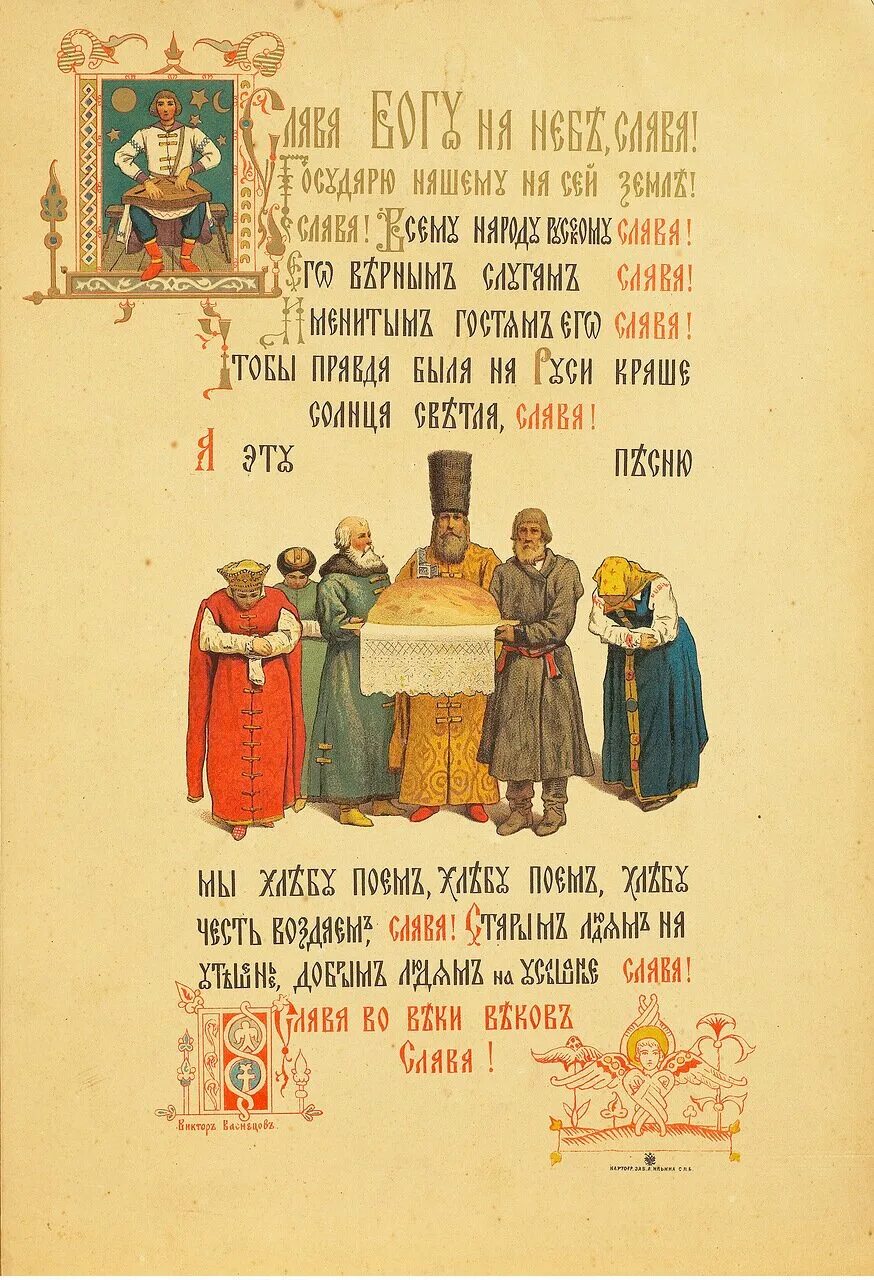 Слава Богꙋ на небѣ, слава!
Государю нашемꙋ на сей землѣ!
Слава! Всемꙋ народꙋ рускомꙋ слава!
Єгѡ вѣрнымъ слꙋгамъ слава!
Именитымъ гостямъ єгѡ слава!
Чтобы правда была на Рꙋси краше
солнца свѣтла, слава!
А этꙋ пѣсню
мы хлѣбꙋ поемъ, хлѣбꙋ поемъ, хлѣбꙋ
честь воздаемъ, слава! Старымъ людямъ на
ꙋтѣшенье, добрымъ людямъ на ꙋслышенье слава!
Слава во вѣки вѣковъ
Слава!
Викторъ Васнецовъ.
КАРТОГР. ЗАВ. А. ИЛЬИНА С.П.Б.